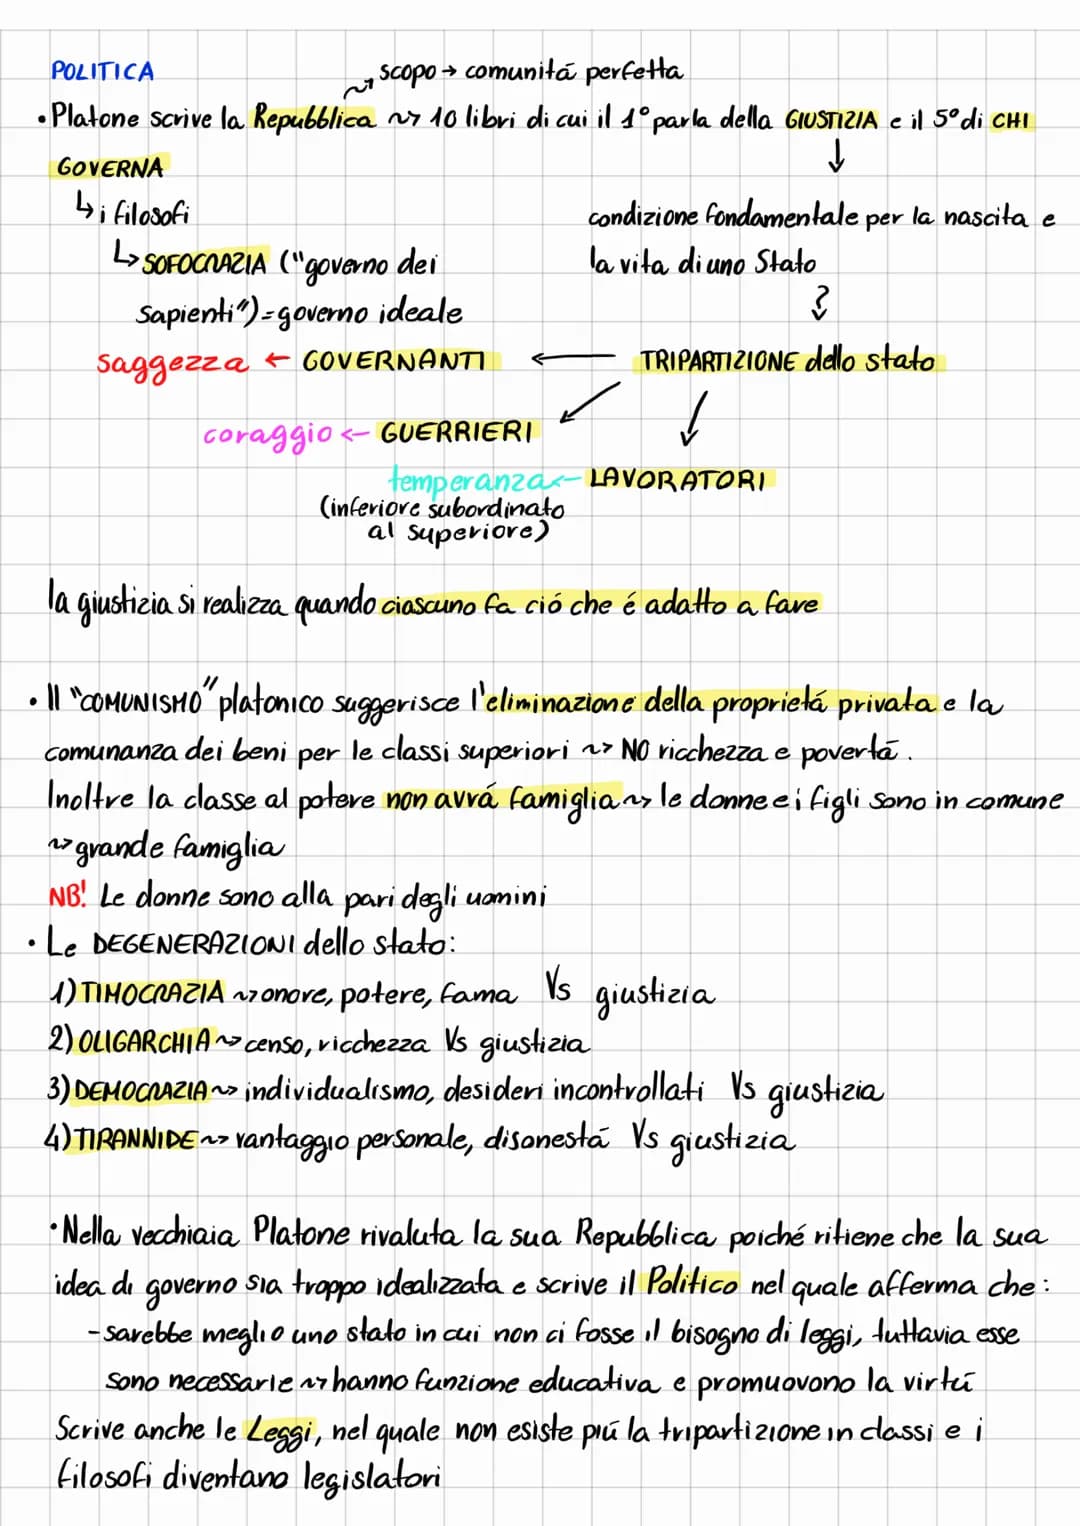 POLITICA
scopo → comunitá perfetta
• Platone scrive la Repubblica ~> 10 libri di cui il 1° parla della GIUSTIZIA e il 5° di CHI
GOVERNA
↳ i filosofi
condizione fondamentale per la nascita e
↳ SOFOCRAZIA ("governo dei
la vita di uno Stato
sapienti") = governo ideale
?
saggezza ← GOVERNANTI ← TRIPARTIZIONE dello stato
coraggio ← GUERRIERI
temperanza ← LAVORATORI
(inferiore subordinato
al superiore)
la giustizia si realizza quando ciascuno fa ció che é adatto a fare
• Il "COMUNISMO" platonico suggerisce l'eliminazione della proprietá privata e la
comunanza dei beni per le classi superiori ~> NO ricchezza e povertá.
Inoltre la classe al potere non avrá famiglia ~> le donne e i figli sono in comune
~> grande famiglia
NB! Le donne sono alla pari degli uomini
• Le DEGENERAZIONI dello stato:
1) TIMOCRAZIA ~> onore, potere, fama Vs giustizia
2) OLIGARCHIA ~> censo, ricchezza Vs giustizia
3) DEMOCRAZIA ~> individualismo, desideri incontrollati Vs giustizia
4) TIRANNIDE ~> vantaggio personale, disonestá Vs giustizia
• Nella vecchiaia Platone rivaluta la sua Repubblica poiché ritiene che la sua
idea di governo sia troppo idealizzata e scrive il Politico nel quale afferma che:
- sarebbe meglio uno stato in cui non ci fosse il bisogno di leggi, tuttavia esse
sono necessarie ~> hanno funzione educativa e promuovono la virtú
Scrive anche le Leggi, nel quale non esiste piú la tripartizione in classi e i
filosofi diventano legislatori